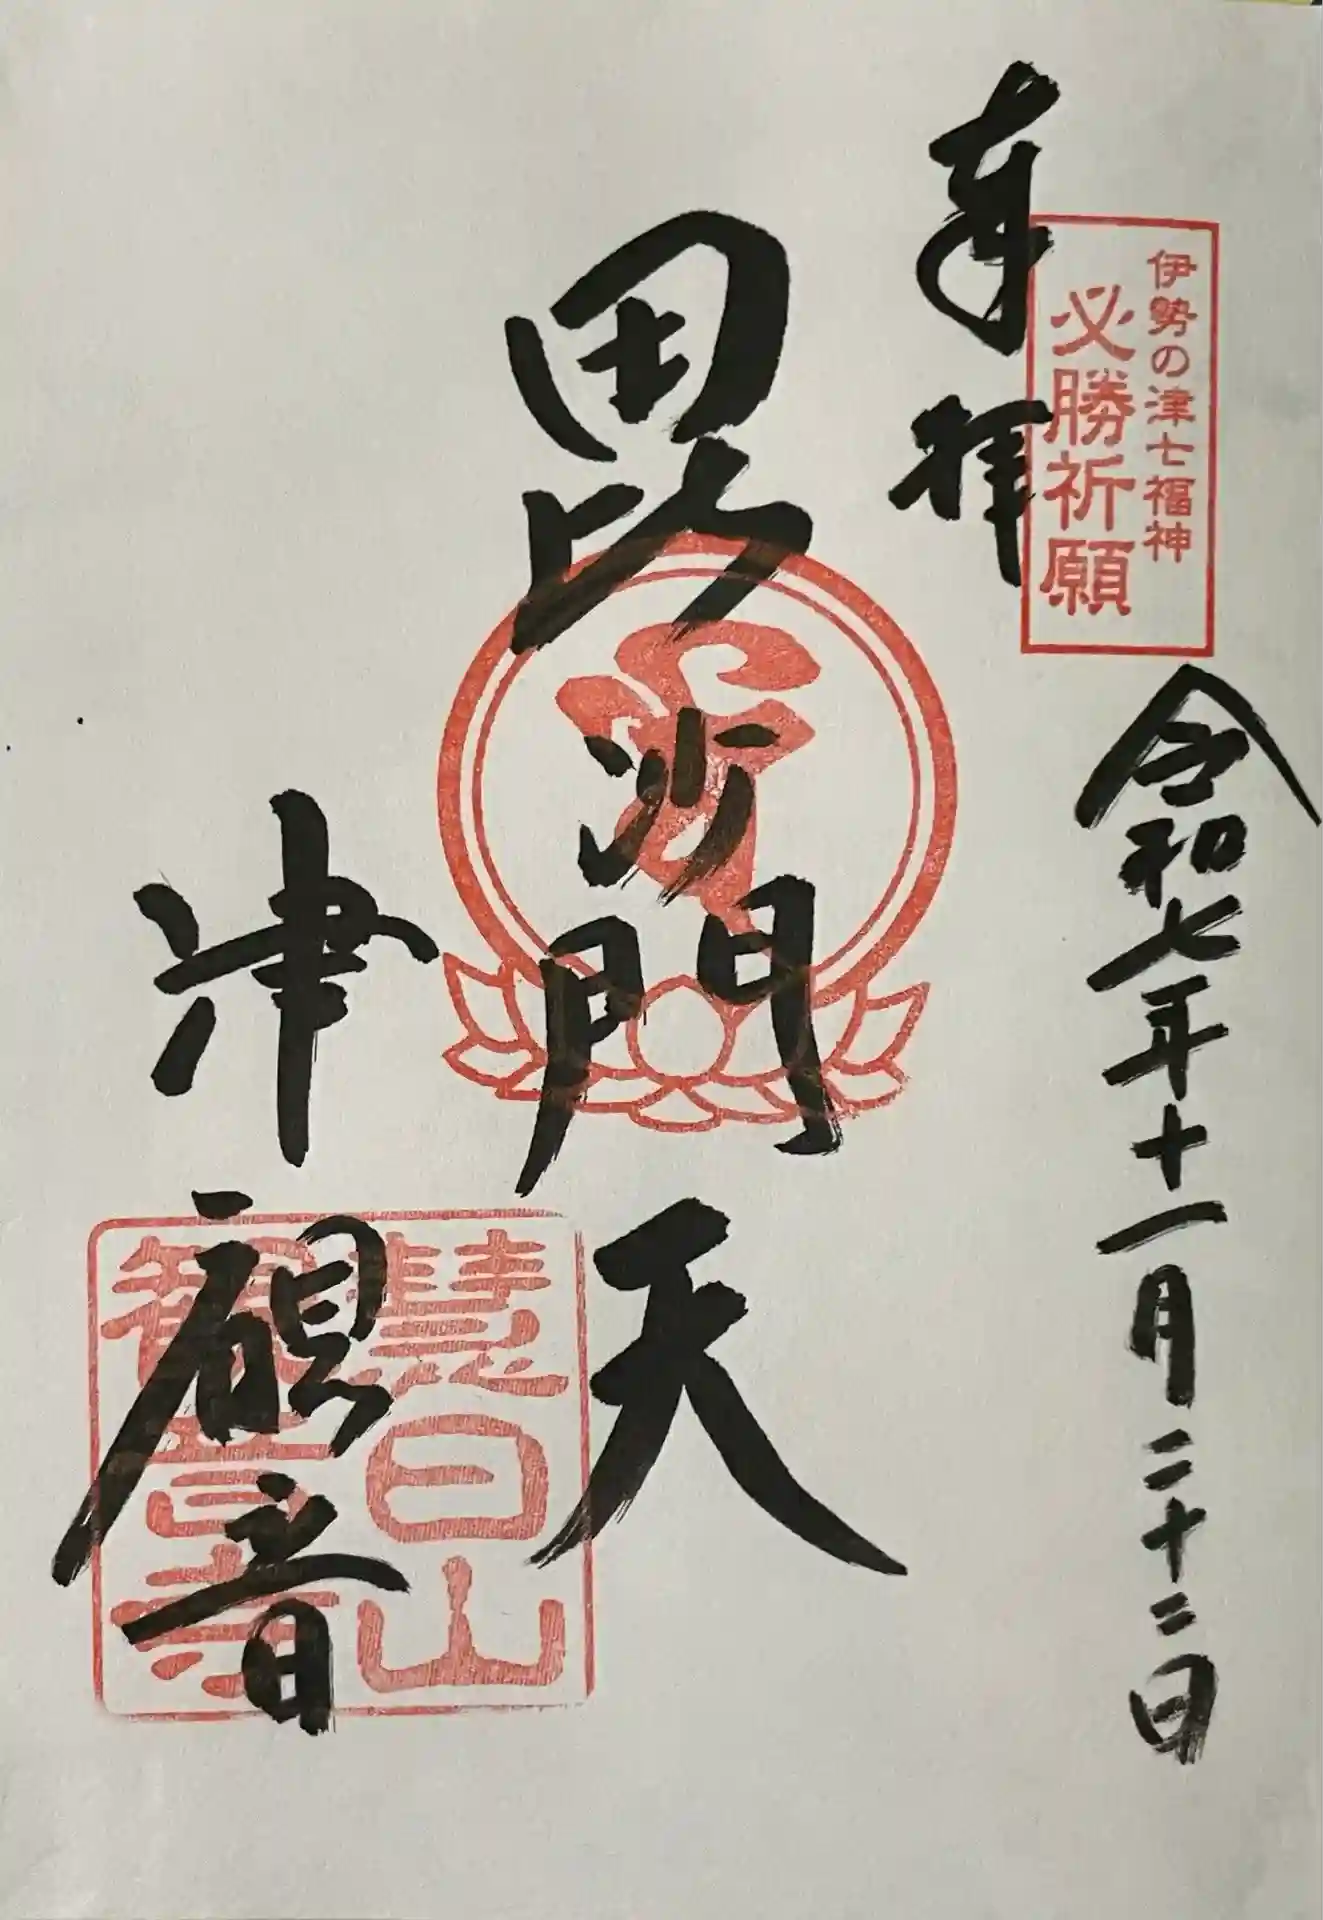 伊勢の津七福神
必勝祈願
奉拝
令和七年十一月二十二日
毘沙門天
津観音
慧日山
観音寺